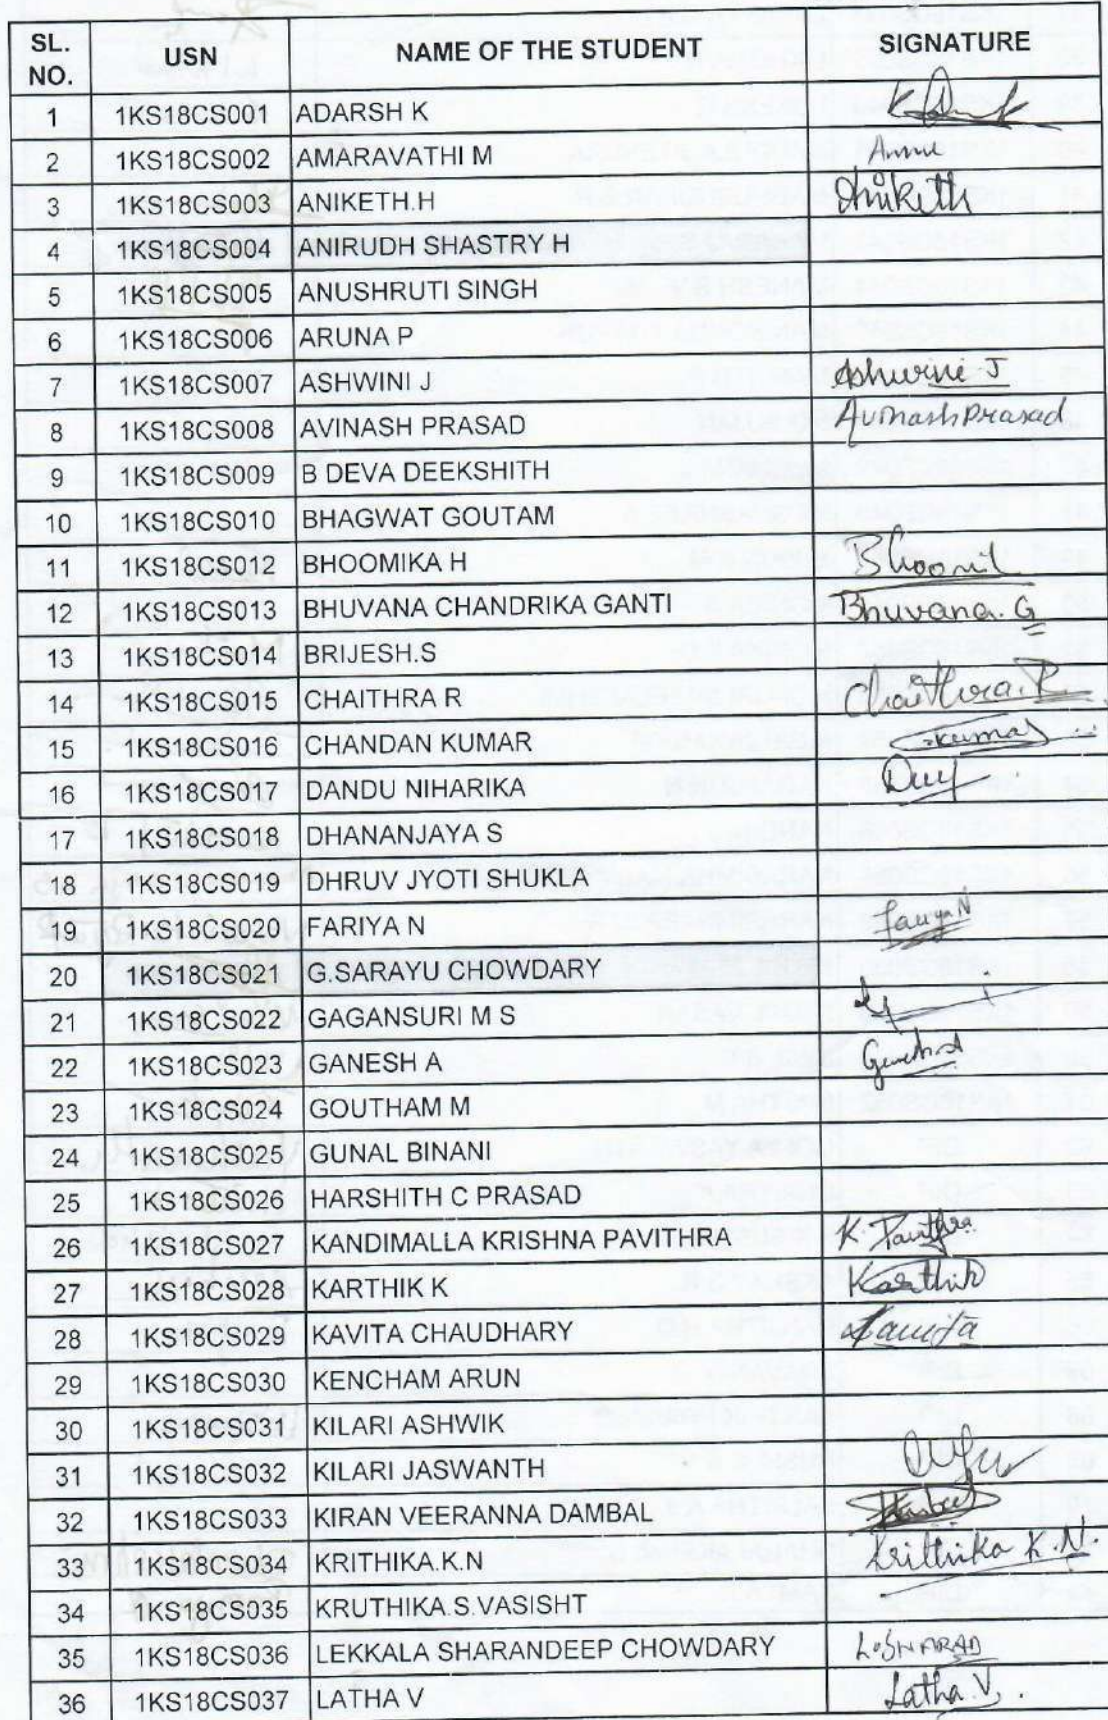 SL. NO. USN NAME OF THE STUDENT SIGNATURE
1 1KS18CS001 ADARSH K
2 1KS18CS002 AMARAVATHI M
3 1KS18CS003 ANIKETH.H Aniketh
4 1KS18CS004 ANIRUDH SHASTRY H
5 1KS18CS005 ANUSHRUTI SINGH
6 1KS18CS006 ARUNA P
7 1KS18CS007 ASHWINI J Ashwini J
8 1KS18CS008 AVINASH PRASAD Avinash Prasad
9 1KS18CS009 B DEVA DEEKSHITH
10 1KS18CS010 BHAGWAT GOUTAM
11 1KS18CS012 BHOOMIKA H
12 1KS18CS013 BHUVANA CHANDRIKA GANTI Bhuvana. G
13 1KS18CS014 BRIJESH.S
14 1KS18CS015 CHAITHRA R Chaithra. R
15 1KS18CS016 CHANDAN KUMAR Kumar
16 1KS18CS017 DANDU NIHARIKA
17 1KS18CS018 DHANANJAYA S
18 1KS18CS019 DHRUV JYOTI SHUKLA
19 1KS18CS020 FARIYA N Fariya N
20 1KS18CS021 G.SARAYU CHOWDARY
21 1KS18CS022 GAGANSURI M S
22 1KS18CS023 GANESH A
23 1KS18CS024 GOUTHAM M
24 1KS18CS025 GUNAL BINANI
25 1KS18CS026 HARSHITH C PRASAD
26 1KS18CS027 KANDIMALLA KRISHNA PAVITHRA K. Pavithra.
27 1KS18CS028 KARTHIK K Karthik
28 1KS18CS029 KAVITA CHAUDHARY Kavita
29 1KS18CS030 KENCHAM ARUN
30 1KS18CS031 KILARI ASHWIK
31 1KS18CS032 KILARI JASWANTH
32 1KS18CS033 KIRAN VEERANNA DAMBAL
33 1KS18CS034 KRITHIKA.K.N Krithika K.N.
34 1KS18CS035 KRUTHIKA.S.VASISHT
35 1KS18CS036 LEKKALA SHARANDEEP CHOWDARY
36 1KS18CS037 LATHA V Latha. V.